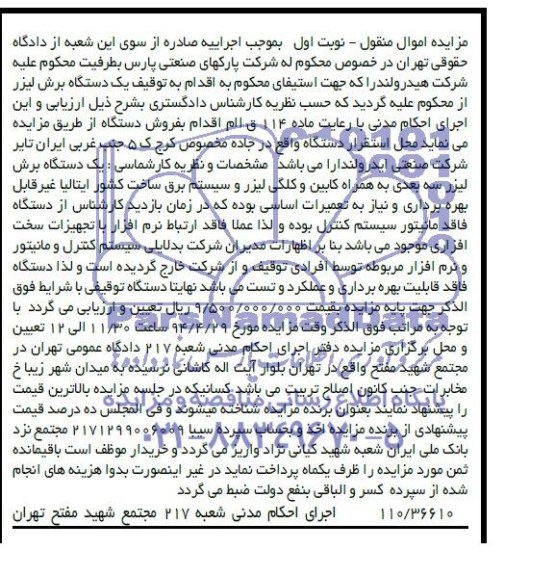 مزایده اموال منقول - نوبت اول بموجب اجراییه صادره از سوی این شعبه از دادگاه
حقوقی تهران در خصوص محکوم له شرکت پارکهای صنعتی پارس بطرفیت محکوم علیه
شرکت هیدرولندرا که جهت استیفای محکوم به اقدام به توقیف یک دستگاه برش لیزر
از محکوم علیه گردید که حسب نظریه کارشناس دادگستری بشرح ذیل ارزیابی و این
اجرای احکام مدنی با رعایت ماده ۱۱۴ ق اام اقدام بفروش دستگاه از طریق مزایده
می نماید محل استقرار دستگاه واقع در جاده مخصوص کرج ک ۵ جنب غربی ایران تایر
شرکت صنعتی ایدرولندارا می باشد مشخصات و نظریه کارشناسی : یک دستگاه برش
لیزر سه بعدی به همراه کابین و کلگی لیزر و سیستم برق ساخت کشور ایتالیا غیرقابل
بهره برداری و نیاز به تعمیرات اساسی بوده که در زمان بازدید کارشناس از دستگاه
فاقد مانیتور سیستم کنترل بوده و لذا عملا فاقد ارتباط نرم افزار با تجهیزات سخت
افزاری موجود می باشد بنا بر اظهارات مدیران شرکت بدلایلی سیستم کنترل و مانیتور
و نرم افزار مربوطه توسط افرادی توقیف و از شرکت خارج گردیده است و لذا دستگاه
فاقد قابلیت بهره برداری و عملکرد و تست می باشد نهایتا دستگاه توقیفی با شرایط فوق
الذکر جهت پایه مزایده بقیمت ۹/۵۰۰/۰۰۰/۰۰۰ ریال تعیین و ارزیابی می گردد با
توجه به مراتب فوق الذکر وقت مزایده مورخ ۹۴/۴/۲۹ ساعت ۱۱/۳۰ الی ۱۲ تعیین
و محل برگزاری مزایده دفتر اجرای احکام مدنی شعبه ۲۱۷ دادگاه عمومی تهران در
مجتمع شهید مفتح واقع در تهران بلوار آیت اله کاشانی نرسیده به میدان شهر زیبا خ
مخابرات جنب کانون اصلاح تربیت می باشد کسانیکه در جلسه مزایده بالاترین قیمت
را پیشنهاد نمایند بعنوان برنده مزایده شناخته میشوند و فی المجلس ده درصد قیمت
پیشنهادی از برنده مزایده اخذ و بحساب سپرده سیبا ۲۱۷۱۲۹۹۰۰۶۰۰۹ مجتمع نزد
بانک ملی ایران شعبه شهید کیانی نژاد واریز می گردد و خریدار موظف است باقیمانده
ثمن مورد مزایده را ظرف یکماه پرداخت نماید در غیر اینصورت بدوا هزینه های انجام
شده از سپرده کسر و الباقی بنفع دولت ضبط می گردد
۱۱۰/۳۶۶۱۰ اجرای احکام مدنی شعبه ۲۱۷ مجتمع شهید مفتح تهران
ParsNamadData
پایگاه اطلاع رسانی مناقصه و مزایده
۰۲۱-۸۸۳۴۹۶۷۰-۵